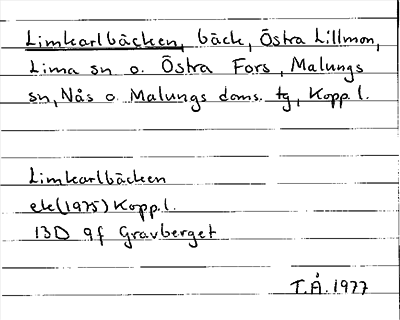 Limkarlbäcken, bäck, Östra Lillmon,
Lima sn o. Östra Fors, Malungs
sn, Nås o. Malungs doms. tg, Kopp. l.
Limkarlbäcken
ek(1975) Kopp. l.
13D 9f Gravberget
T.Å. 1977